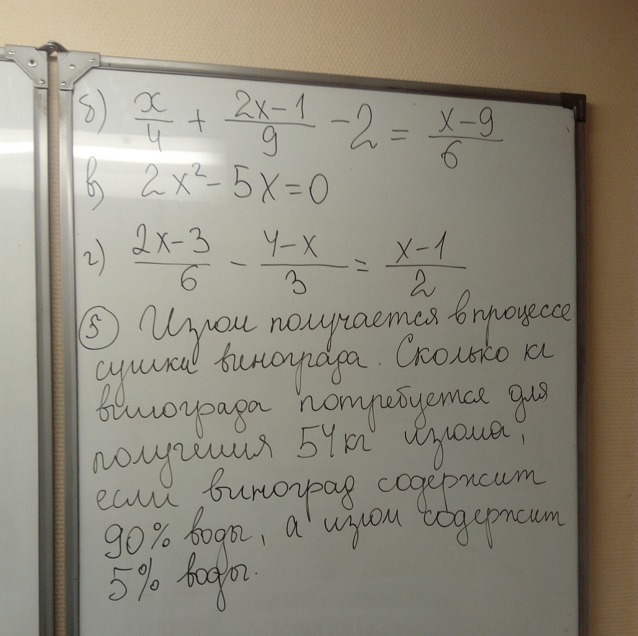 б) x/4 + (2x-1)/9 - 2 = (x-9)/6
в) 2x² - 5x = 0
г) (2x-3)/6 - (4-x)/3 = (x-1)/2
⑤ Изюм получается в процессе
сушки винограда. Сколько кг
винограда потребуется для
получения 54кг изюма,
если виноград содержит
90% воды, а изюм содержит
5% воды.